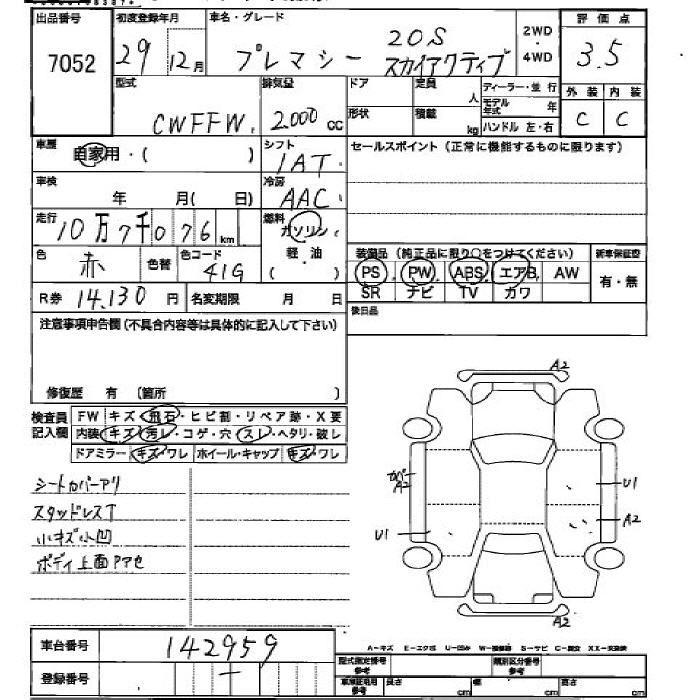 出品番号 初度登録年月 車名・グレード 2WD・4WD 評価点
7052 29 12月 プレマシー 20S スカイアクティブ 3.5
型式 排気量 ドア 定員 人 ディーラー・並行 外装 内装
CWFFW 2.000 cc 形状 積載 kg モデル年式 年 C C
ハンドル 左・右
車歴 自家用・( ) シフト 1AT セールスポイント (正常に機能するものに限ります)
車検 年 月( 日) 冷房 AAC
走行 10万7千076km 燃料 ガソリン 軽油 ( )
色 赤 色替 色コード 41G 装備品 (純正品に限り○をつけてください) 新車保証書
PS PW ABS エアB AW 有・無
R券 14.130円 名変期限 月 日 SR ナビ TV カワ
注意事項申告欄 (不具合内容等は具体的に記入して下さい) 後日品
修復歴 有 (箇所 )
検査員記入欄 FW キズ・飛石・ヒビ割・リペア跡・X要
内装 キズ・汚レ・コゲ・穴・スレ・ヘタリ・破レ
ドアミラー キズ・ワレ ホイール・キャップ キズ・ワレ
A2
シートカバーアリ
カバーA2 U1
スタッドレスT
U1 A2
小キズ小凹
ボディ上面アアセ
A2
車台番号 142959
A-キズ U-凹み
登録番号 ー
型式指定番号 参考 類別区分番号 参考
車庫証明用 参考 長さ cm 幅 cm 高さ cm